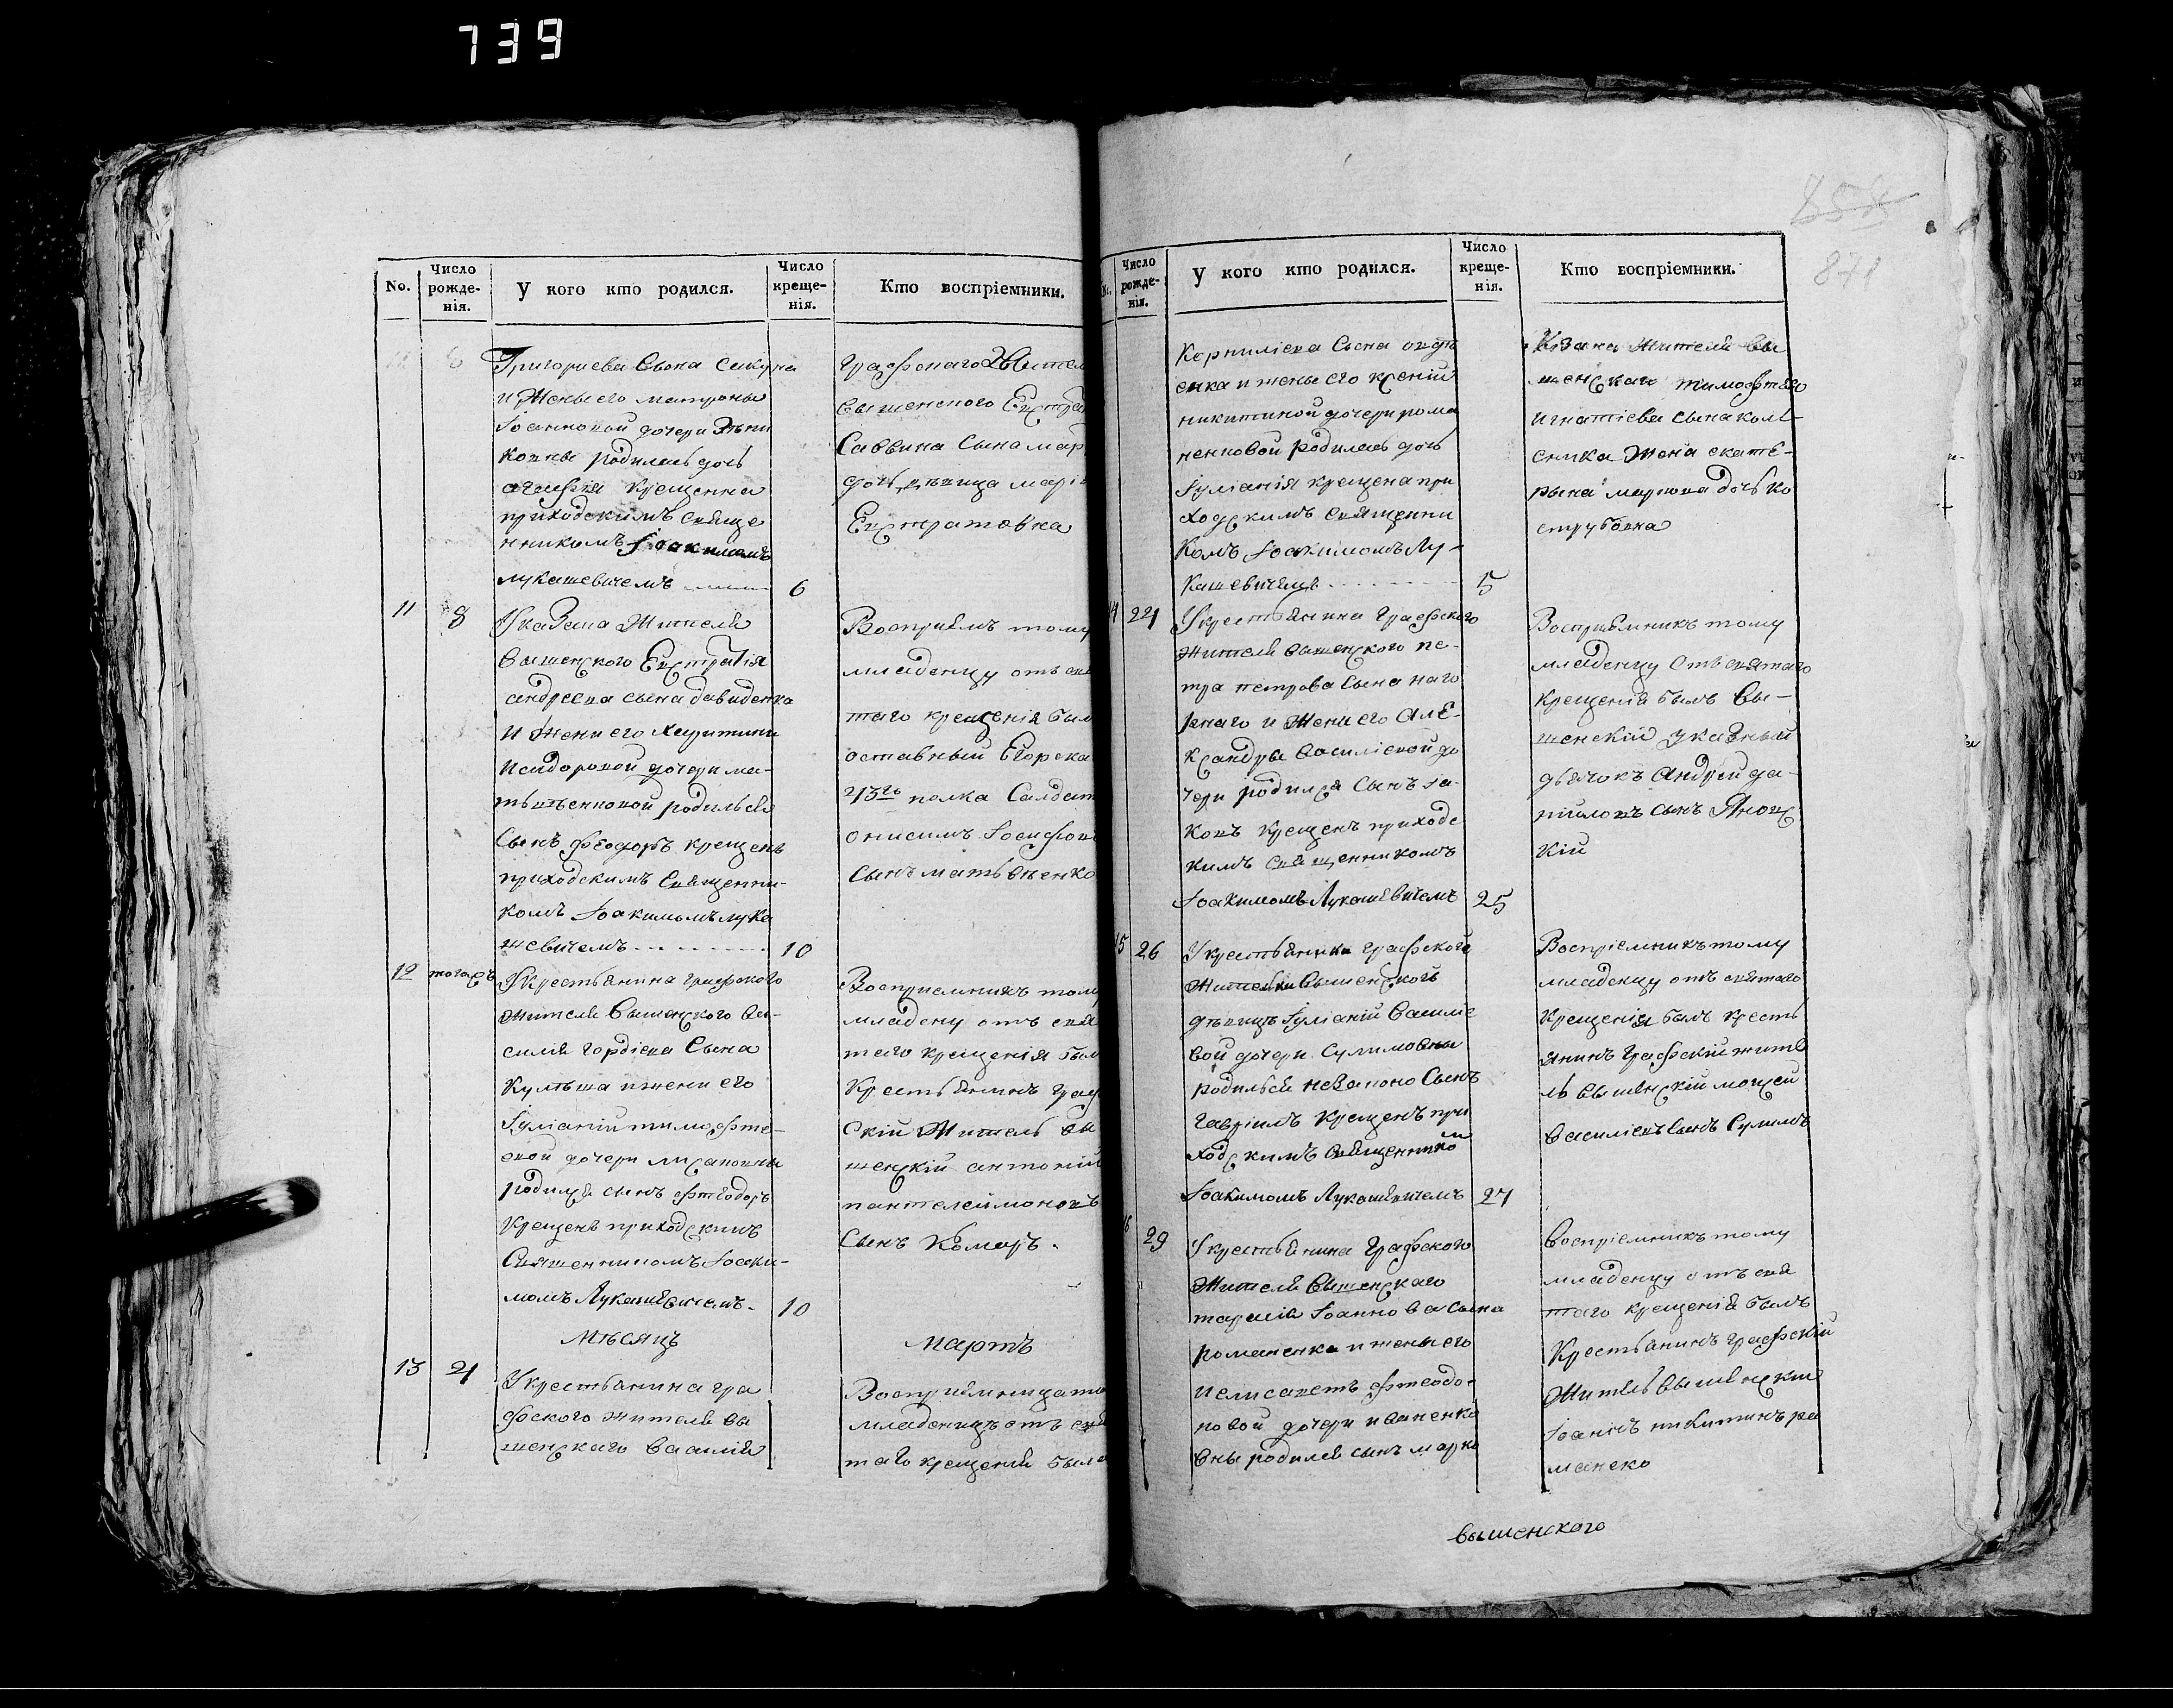 739
No.
Число рожденія.
У кого кто родился.
Число крещенія.
Кто воспріемники.
Григориева Сына Сикура
и Жены его матроны
Іоанновой дочери
ковны родилась дочь
агафія крещенна
приходскимъ свяще
нникомъ Іоакимомъ
лукашевичемъ 6
графскаго Жител
вышенского Евстра
Саввина Сына мар
дочь дѣвица марі
Евстратовна
11 8 Указака Жителя
Вышенского Евстратія
андреева сына давиденка
и Жени его Харитини
Исидоровой дочери ма-
твѣенковой родился
Сынъ феодоръ крещенъ
приходскимъ Священни-
комъ Іоакимомъ лука
шевичемъ 10
Восприемъ тому
младенцу отъ свя
таго крещенія был
оставный Егорска
полка Салдат
онисимъ Іосифов
сынъ матьвѣенко
12 тогожъ Укрестьянина графского
жителя Вышенского Ва-
силія гордіева Сына
Кулѣша и жени его
Іуліаніи тимофте-
евой дочери лисаковны
родился сынъ фтеодоръ
Крещенъ приходскимъ
Священникомъ Іоаки-
момъ Лукашевичемъ 10
Восприемникъ тому
младену отъ свя
таго крещенія был
Крестьянинъ граф
скій Житель вы
шенскій антоній
пантелеймоновъ
Сынъ Комаръ.
Мѣсяцъ мартъ
13 21 Укрестьянина гра
фского жителя вы
шенскаго Василія
Восприемница то
младеницѣ отъ свя
таго крещенія была
858
871
Число рожденія.
У кого кто родился.
Число крещенія.
Кто воспріемники.
Корниліева Сына
енка и жены его ксеніи
никитиной дочери рома
ненковой родилась дочь
Іуліанія крещена при
ходскимъ священни
Комъ Іоакимомъ Лу-
кашевичемъ 5
Казака Жителя вы
шенскаго тимофтея
игнатіева сына кол-
сника Жена екате-
рына маркова дочь ко
струбовна
14 Укрестьянина графского
жителя вышенского пе-
тра петрова Сына наго
рнаго и Жени его але-
ксандры Василіевой до
чери родился Сынъ іа-
ковъ крещенъ приходс
кимъ священникомъ
Іоакимомъ Лукашевичемъ 25
Восприемникъ тому
младенцу отъ святаго
крещенія былъ вы-
шенскій указный
дьячокъ Андрей да-
ніиловъ сынъ Яновс
кій
15 26 Укрестьянина графского
жителя вышенского
дѣвицѣ Іуліаніи Василіе
вой дочери Сулимовны
родился незаконо Сынъ
гавріилъ крещенъ при
ходскимъ священником
Іоакимомъ Лукашевичемъ 27
Воспріемникъ тому
младенцу отъ святаго
Крещенія былъ кресть
янинъ графскій жите
ль вышенскій моусей
Василіевъ сынъ Сулимъ
16 29 Укрестьянина графского
Жителя Вышенскаго
тарасія Іоаннова сына
романенка и жены его
иелисаветъ фтеодо-
ровой дочери иваненко
вны родился сынъ марко
Воспріемникъ тому
младенцу отъ свя
таго крещенія былъ
Крестьянинъ графскій
Житель вышенскій
Іоаннъ никитинъ ро
манеко
вышенского